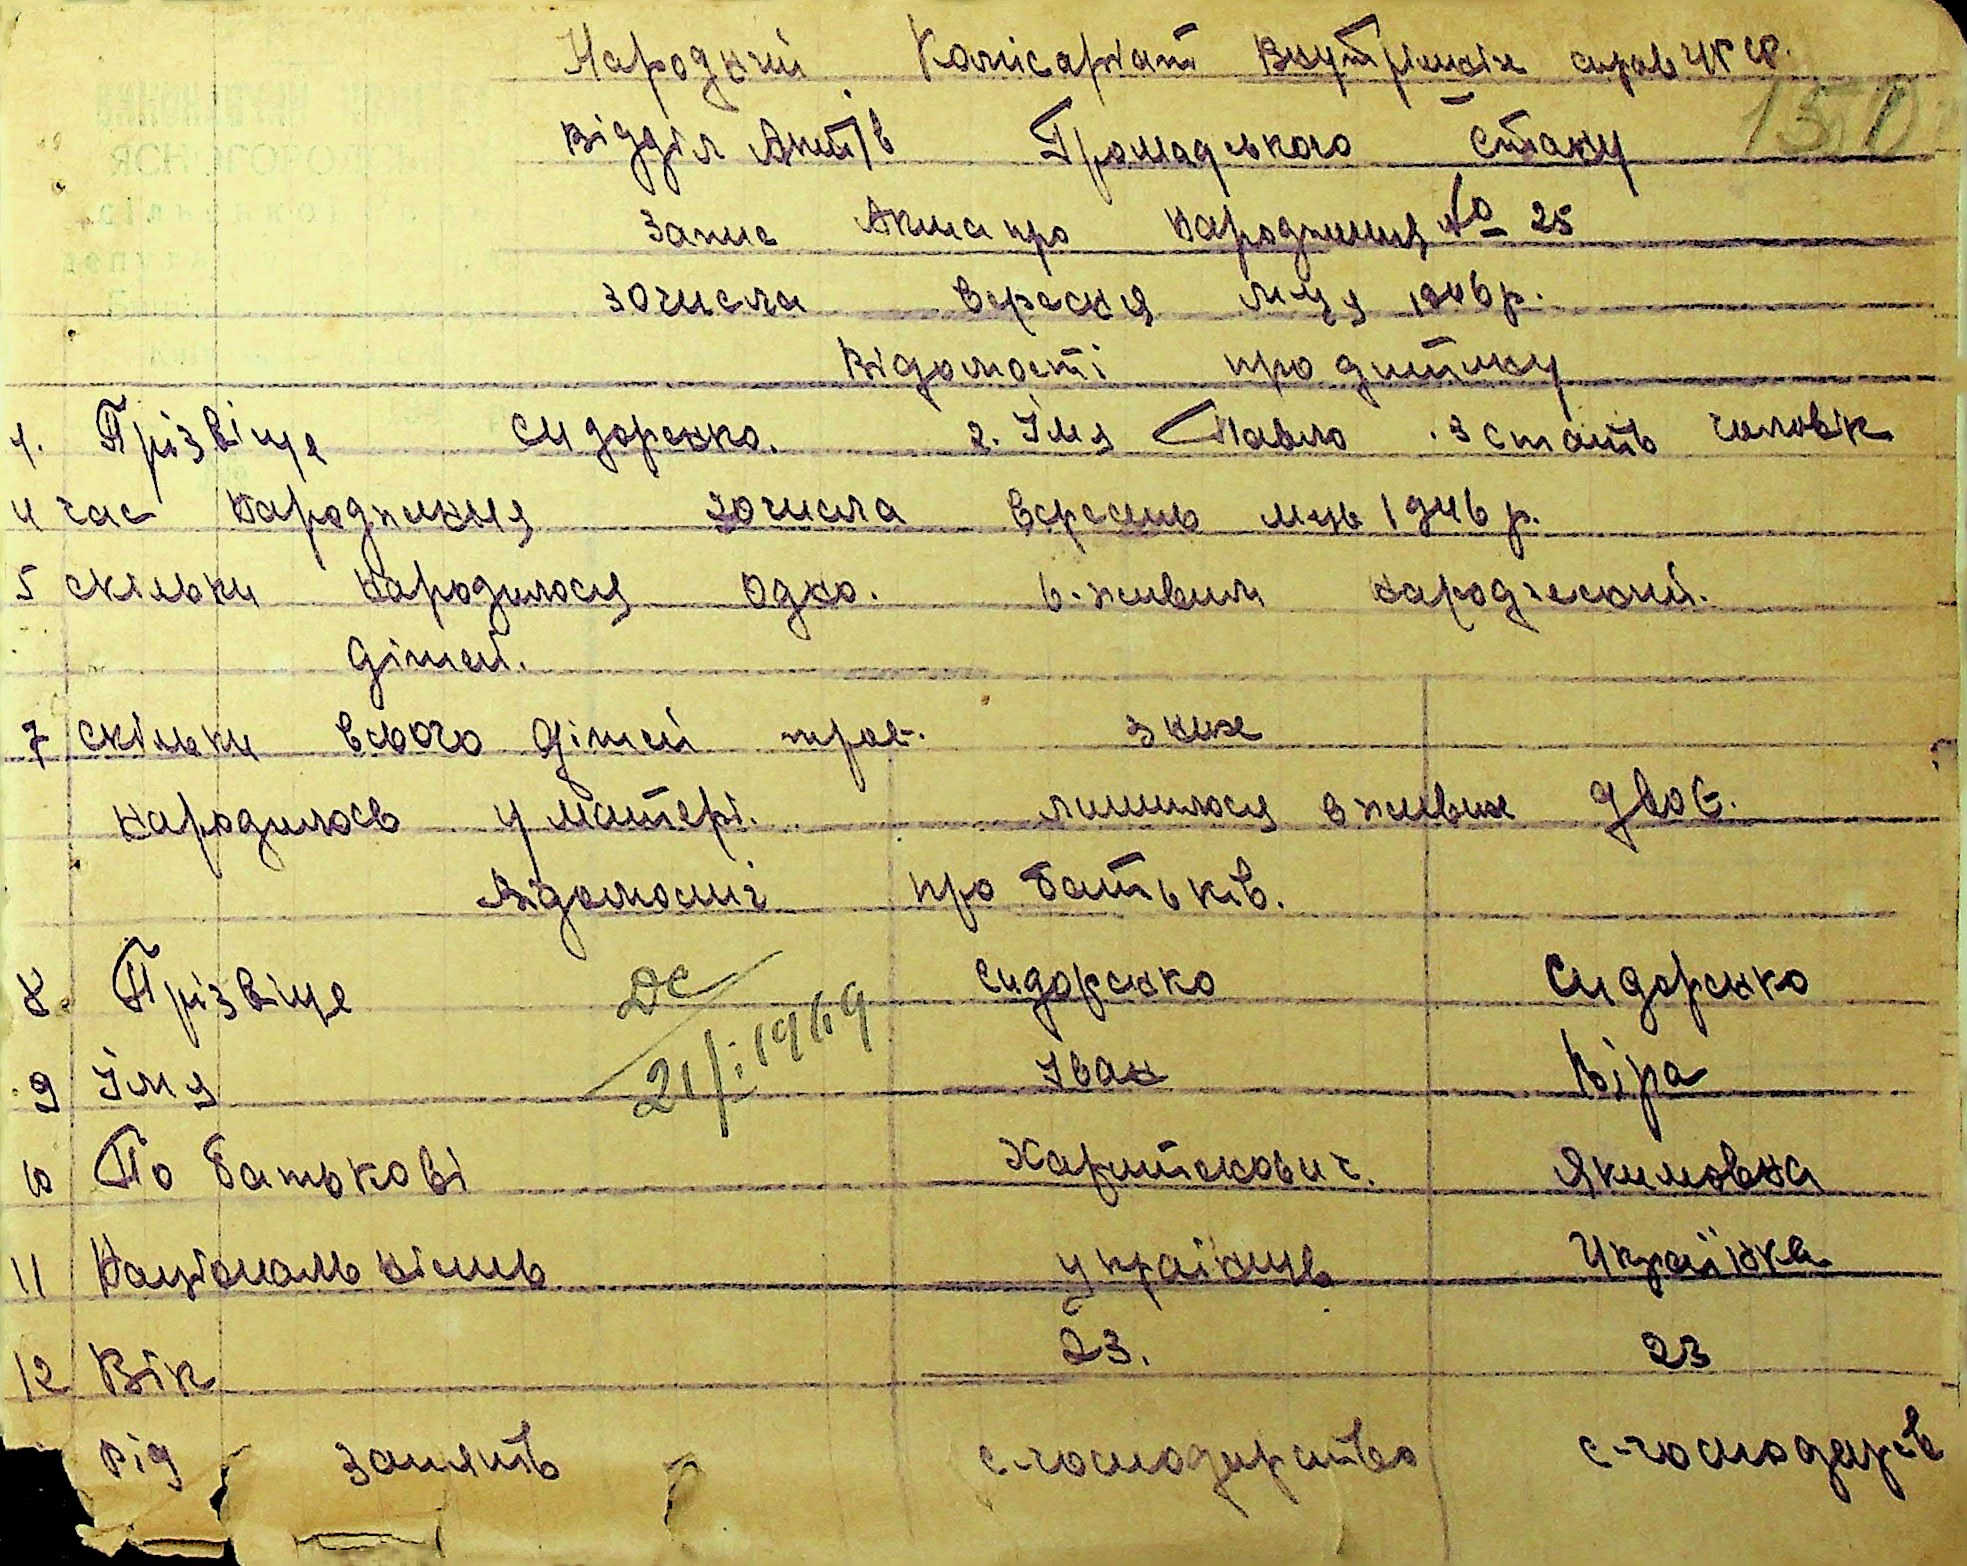 Народний Комісаріат Внутрішніх справ
Відділ Актів Громадського Стану
Запис Акта про народження № 25
30 числа вересня м-ця 1946 р.
Відомості про дитину
1. Прізвіще Сидоренко. 2. Імя Павло . 3 стать чоловік
4 час народження 20 числа вересень м-ць 1946 р.
5 скільки народилося одно. 6. живим народжений.
дітей.
7 скільки всього дітей троє. з них
народилось у матері. лишилося в живих двоє.
Відомості про батьків.
8. Прізвіще Сидоренко Сидоренко
9 Імя Іван Віра
10 По батькові Харитонович. Якимовна
11 Національність українець Українка
12 Вік 23. 23
Рід занять с-господарство с-господарств